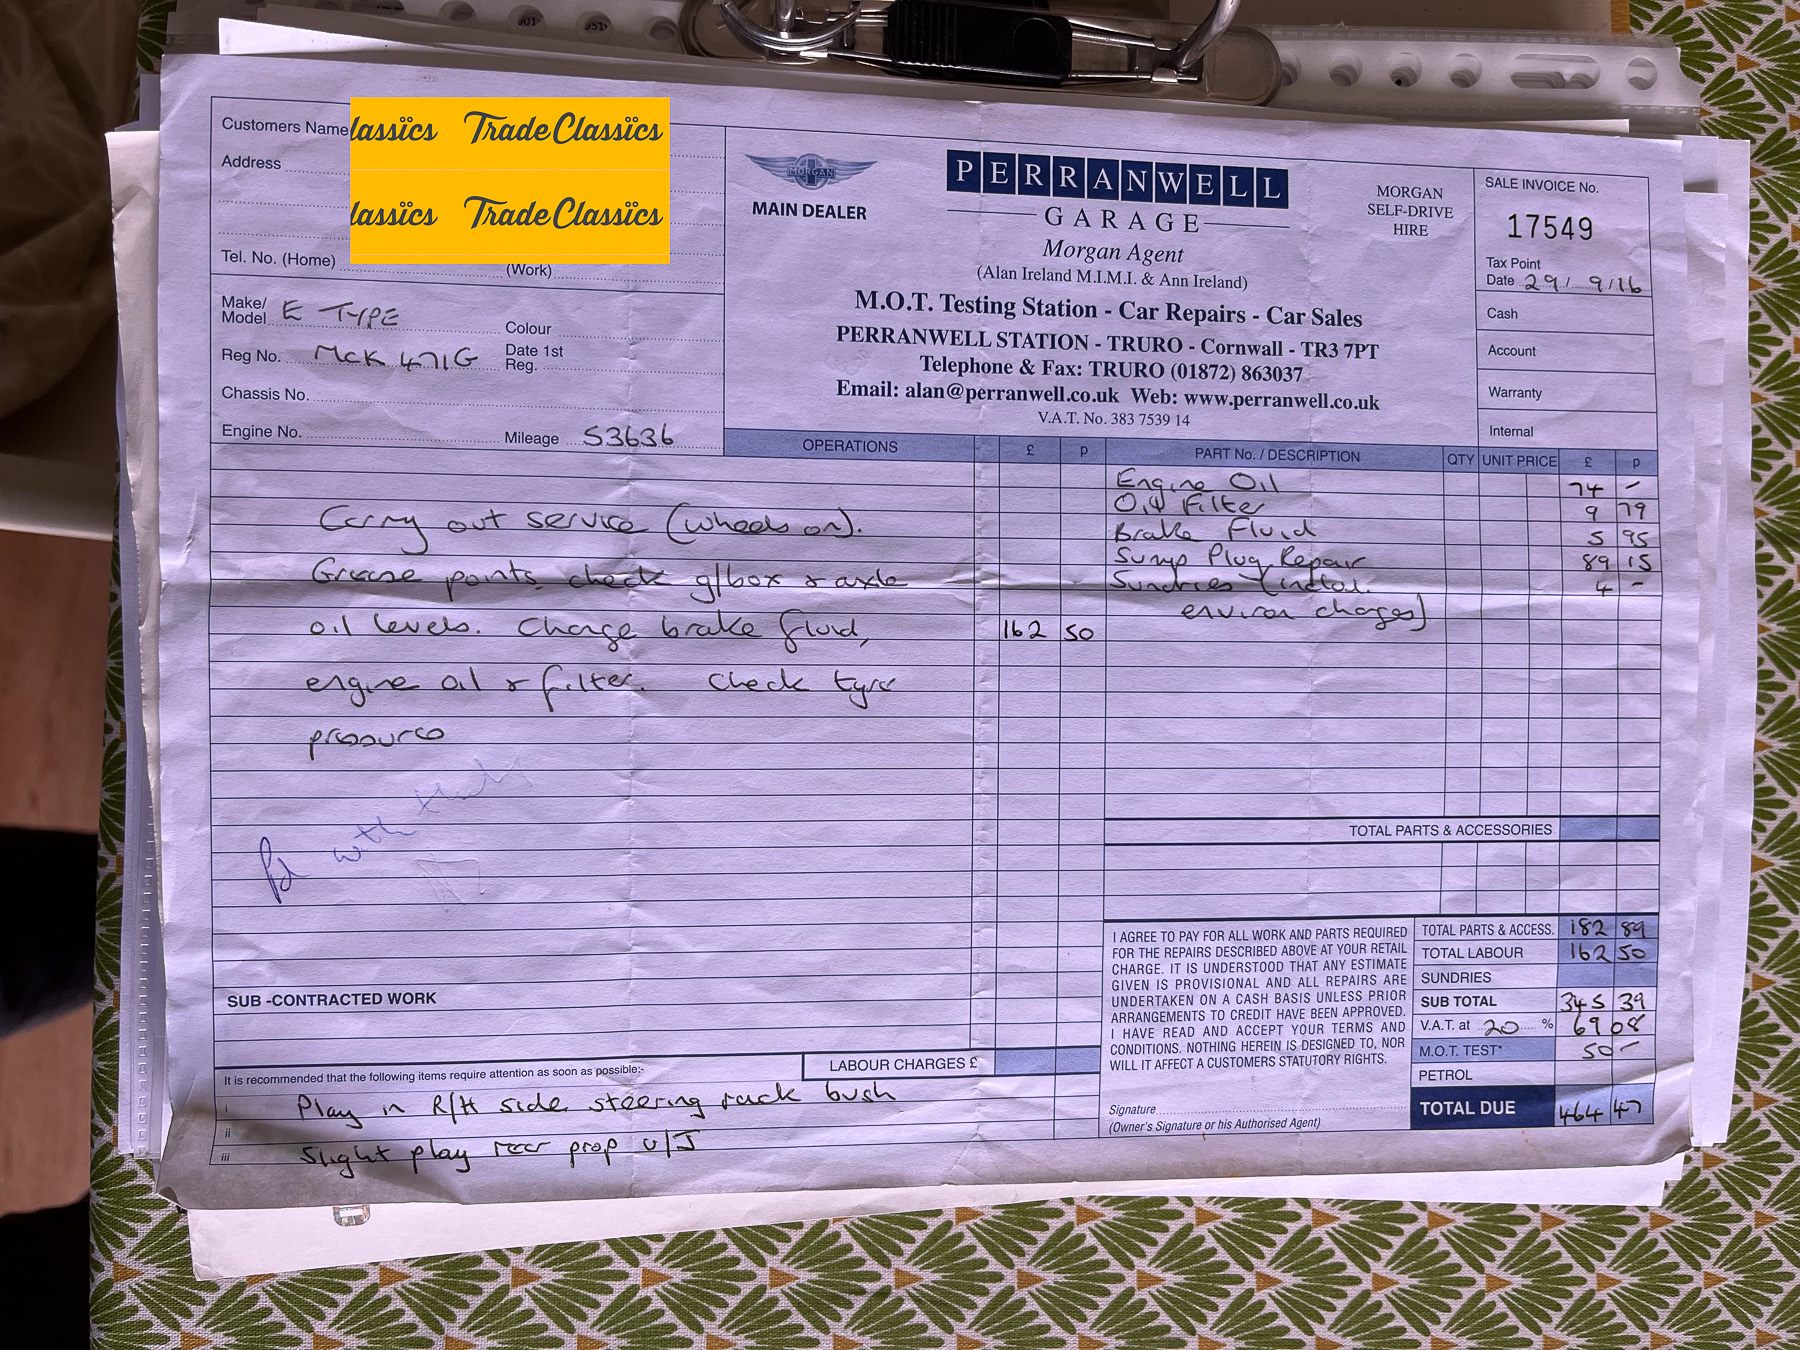 Customers Name
lassïcs TradeClassïcs
Address
lassïcs TradeClassïcs
Tel. No. (Home) (Work)
Make/
Model E TYPE
Colour
Reg No. MCK 471G
Date 1st
Reg.
Chassis No.
Engine No. Mileage 53636
MORGAN
MAIN DEALER
PERRANWELL
GARAGE
Morgan Agent
(Alan Ireland M.I.M.I. & Ann Ireland)
M.O.T. Testing Station - Car Repairs - Car Sales
PERRANWELL STATION - TRURO - Cornwall - TR3 7PT
Telephone & Fax: TRURO (01872) 863037
Email: alan@perranwell.co.uk Web: www.perranwell.co.uk
V.A.T. No. 383 7539 14
MORGAN
SELF-DRIVE
HIRE
SALE INVOICE No.
17549
Tax Point
Date 29/ 9/16
Cash
Account
Warranty
Internal
OPERATIONS £ p
PART No. / DESCRIPTION QTY UNIT PRICE £ p
Carry out service (wheels on).
Grease points, check g/box & axle
oil levels. Change brake fluid, 162 50
engine oil & filter. Check tyre
pressures
Engine Oil 74 -
Oil Filter 9 79
Brake Fluid 5 95
Sump Plug Repair 89 15
Sundries (includ. 4 -
environ charges)
Pd with
TOTAL PARTS & ACCESSORIES
SUB -CONTRACTED WORK
LABOUR CHARGES £
It is recommended that the following items require attention as soon as possible:-
i Play in R/H side steering rack bush
ii
iii Slight play rear prop u/J
I AGREE TO PAY FOR ALL WORK AND PARTS REQUIRED
FOR THE REPAIRS DESCRIBED ABOVE AT YOUR RETAIL
CHARGE. IT IS UNDERSTOOD THAT ANY ESTIMATE
GIVEN IS PROVISIONAL AND ALL REPAIRS ARE
UNDERTAKEN ON A CASH BASIS UNLESS PRIOR
ARRANGEMENTS TO CREDIT HAVE BEEN APPROVED.
I HAVE READ AND ACCEPT YOUR TERMS AND
CONDITIONS. NOTHING HEREIN IS DESIGNED TO, NOR
WILL IT AFFECT A CUSTOMERS STATUTORY RIGHTS.
Signature
(Owner's Signature or his Authorised Agent)
TOTAL PARTS & ACCESS. 182 89
TOTAL LABOUR 162 50
SUNDRIES
SUB TOTAL 345 39
V.A.T. at 20 % 69 08
M.O.T. TEST* 50 -
PETROL
TOTAL DUE 464 47